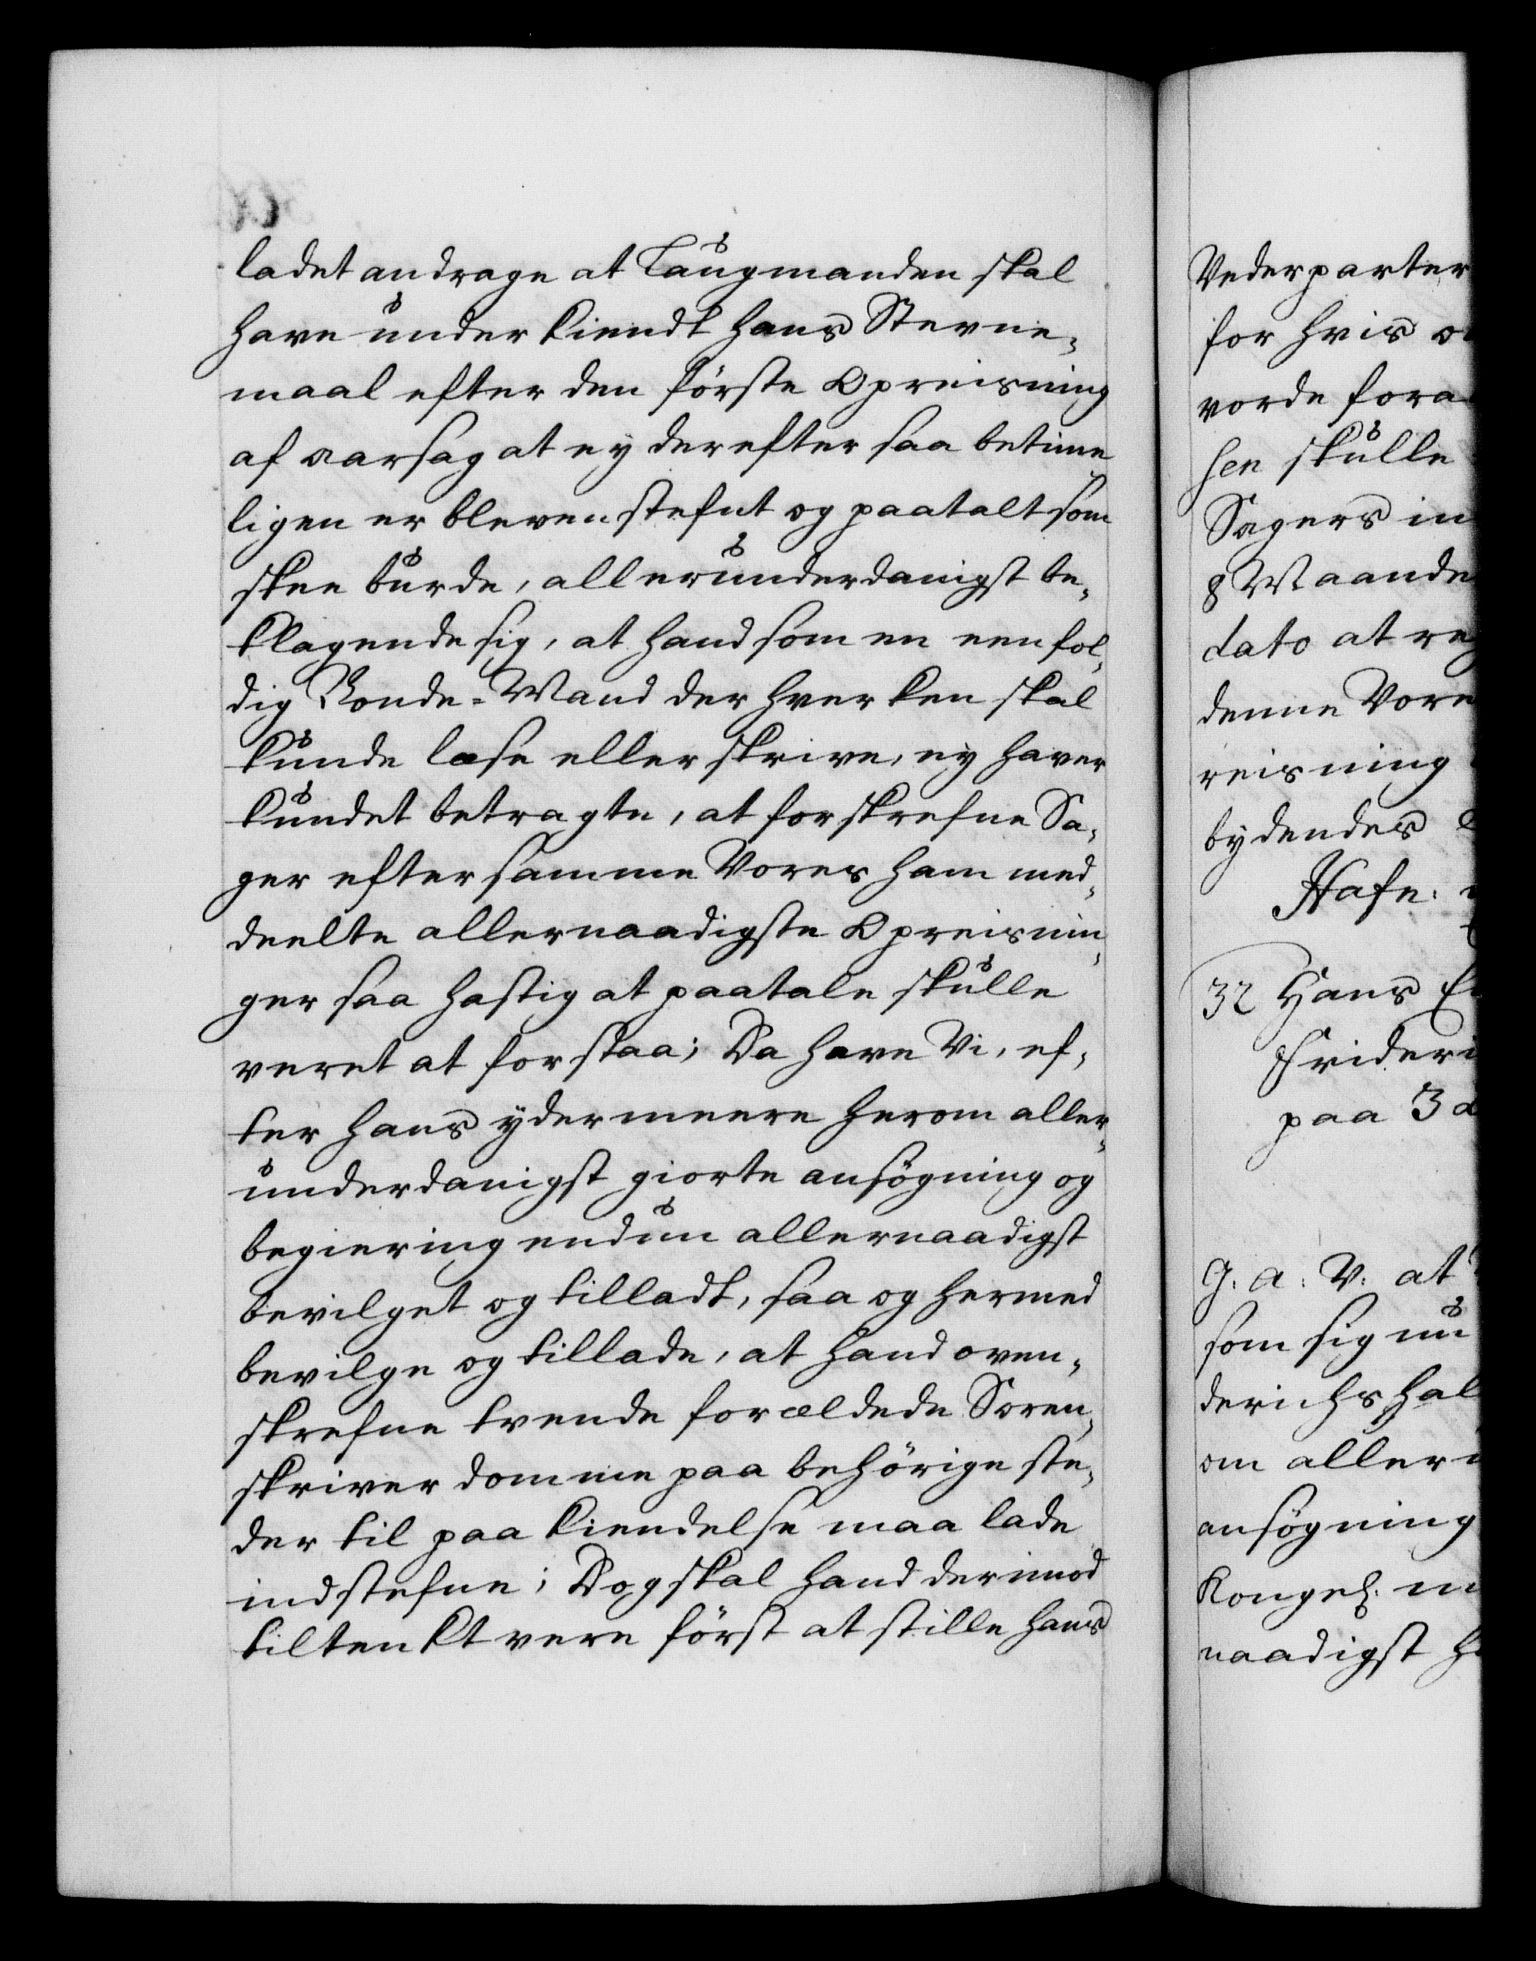 ladet andrage at Laugmanden skal
have underkiendt hans Stevne-
maal efter den förste Opreisning
af aarsag at ey derefter saa betime
ligen er bleven stefnt og paatalt som
skee burde, allerunderdanigst be-
klagende sig, at hand som en eenfol-
dig Bonde-Mand der hverken skal
kunde læse eller skrive, ey haver
kundet betragte, at forskrefne Sa-
ger efter samme Vores ham med-
deelte allernaadigste Opreisnin-
ger saa hastig at paatale skulle
veret at forstaa; Da have Vi, ef-
ter hans ydermeere herom aller-
underdanigst giorte ansøgning og
begiering endnu allernaadigst
bevilget og tilladt, saa og hermed
bevilge og tillade, at hand oven-
skrefne tvende forældede Soren-
skriver domme paa behörige ste-
der til paa kiendelse maa lade
indstefne; Dog skal hand derimod
tiltenkt vere først at stille hans
Vederparter
for hvis o
vorde fora
hen skulle
Sagers in
8 Maande
dato at re
denne Vore
reisning
bydendes
Hafn:
32 Hans
Frideri
paa 3
G: A: V: at
som sig nu
derichshal
om aller
ansøgning
Kongel:
naadigst